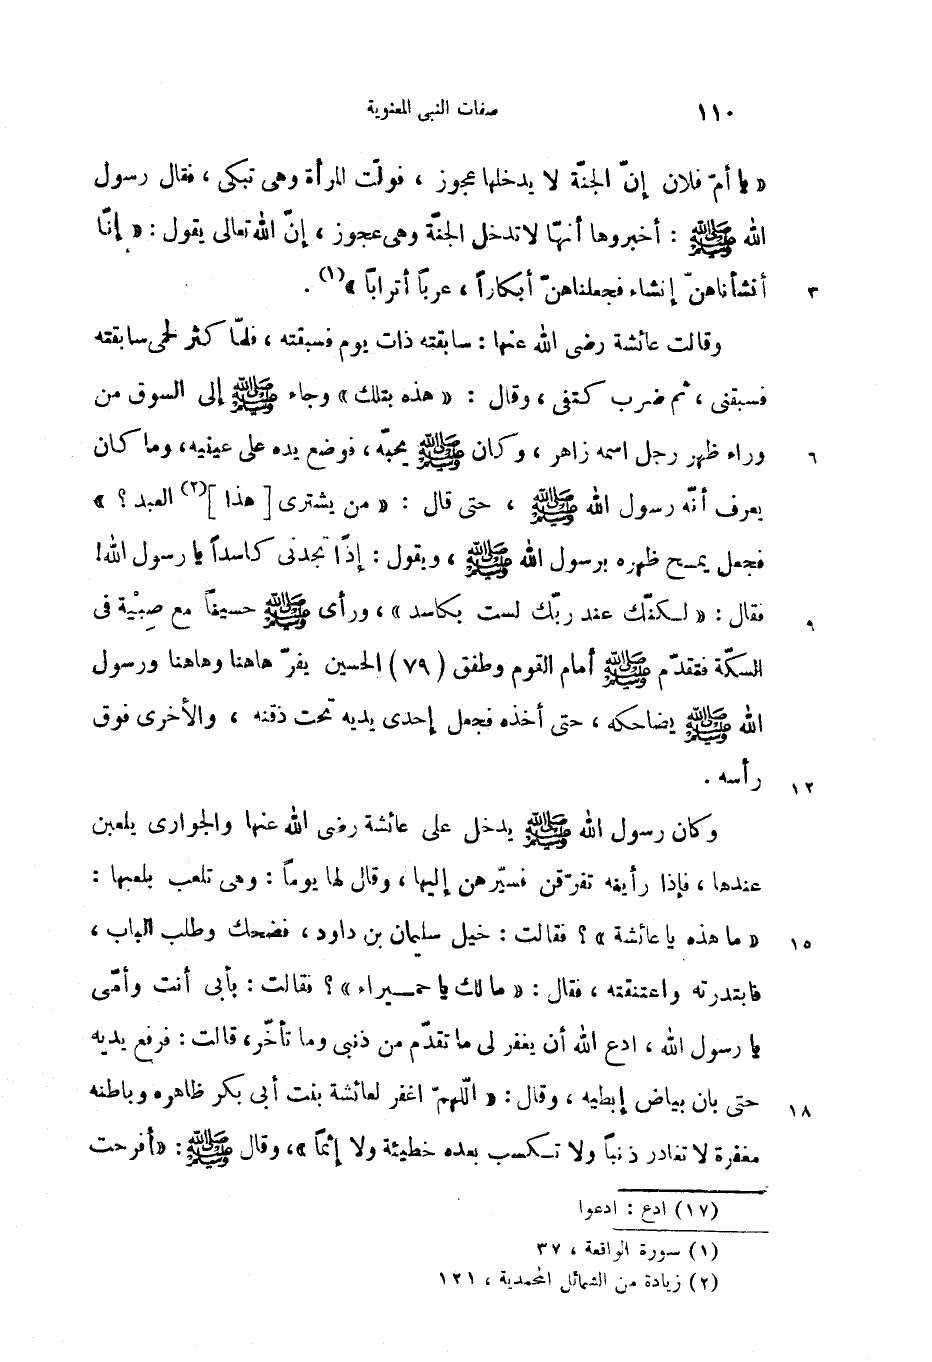 ١١٠ صفات النبى المعنوية
« يا أمّ فلان إنّ الجنّة لا يدخلها عجوز ، فولّت المرأة وهى تبكى ، فقال رسول
الله ﷺ : أخبروها أنّها لا تدخل الجنّة وهى عجوز ، إنّ الله تعالى يقول : « إنّا
٣ أنشأناهنّ إنشاء فجعلناهنّ أبكاراً ، عرباً أتراباً »(١) .
وقالت عائشة رضى الله عنها : سابقته ذات يوم فسبقته ، فلمّا كثر لحمى سابقته
فسبقنى ، ثم ضرب كتفى ، وقال : « هذه بتلك » وجاء ﷺ إلى السوق من
٦ وراء ظهر رجل اسمه زاهر ، وكان ﷺ يحبّه ، فوضع يده على عينيه ، وما كان
يعرف أنّه رسول الله ﷺ ، حتى قال : « من يشترى [ هذا ](٢) العبد ؟ »
فجعل يمسح ظهره برسول الله ﷺ ، ويقول : إذًا تجدنى كاسداً يا رسول الله!
٩ فقال : « لكنّك عند ربّك لست بكاسد » ، ورأى ﷺ حسيناً مع صِبْية فى
السكّة فتقدّم ﷺ أمام القوم وطفق ( ٧٩ ) الحسين يفرّ هاهنا وهاهنا ورسول
الله ﷺ يضاحكه ، حتى أخذه فجعل إحدى يديه تحت ذقنه ، والأخرى فوق
١٢ رأسه .
وكان رسول الله ﷺ يدخل على عائشة رضى الله عنها والجوارى يلعبن
عندها ، فإذا رأينه تفرّقن فسيّرهن إليها ، وقال لها يوماً : وهى تلعب بلعبها :
١٥ « ما هذه يا عائشة » ؟ فقالت : خيل سليمان بن داود ، فضحك وطلب الباب ،
فابتدرته واعتنقته ، فقال : « مالك يا حميراء » ؟ فقالت : بأبى أنت وأمّى
يا رسول الله ، ادع الله أن يغفر لى ما تقدّم من ذنبى وما تأخّر ، قالت : فرفع يديه
١٨ حتى بان بياض إبطيه ، وقال : « اللهمّ اغفر لعائشة بنت أبى بكر ظاهره وباطنه
مغفرة لا تغادر ذنباً ولا تكسب بعده خطيئة ولا إثماً » ، وقال ﷺ : « أفرحت
(١٧) ادع : ادعوا
(١) سورة الواقعة ، ٣٧
(٢) زيادة من الشمائل المحمدية ، ١٢١